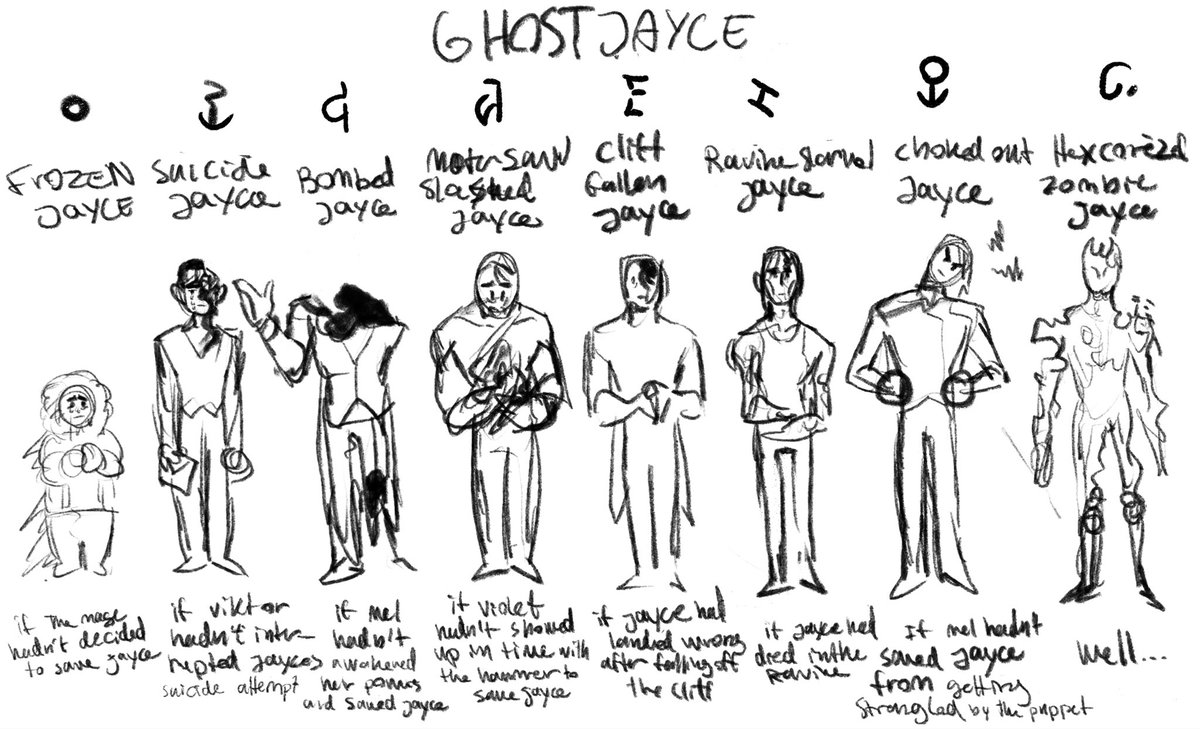 GHOST JAYCE
FROZEN
JAYCE
suicide
Jayce
Bombed
Jayce
slashed
Jayce
cliff
fallen
Jayce
Ravine
Jayce
choked out
Jayce
Hexcorized
zombie
Jayce
if the mage
hadn't decided
to save jayce
if viktor
hadn't inter-
rupted jayces
suicide attempt
if mel
hadn't
awakened
her powers
and saved jayce
if violet
hadn't showed
up in time with
the hammer to
save jayce
if jayce had
landed wrong
after falling off
the cliff
if jayce had
died in the
Ravine
If mel hadn't
saved Jayce
from getting
strangled by the puppet
well...